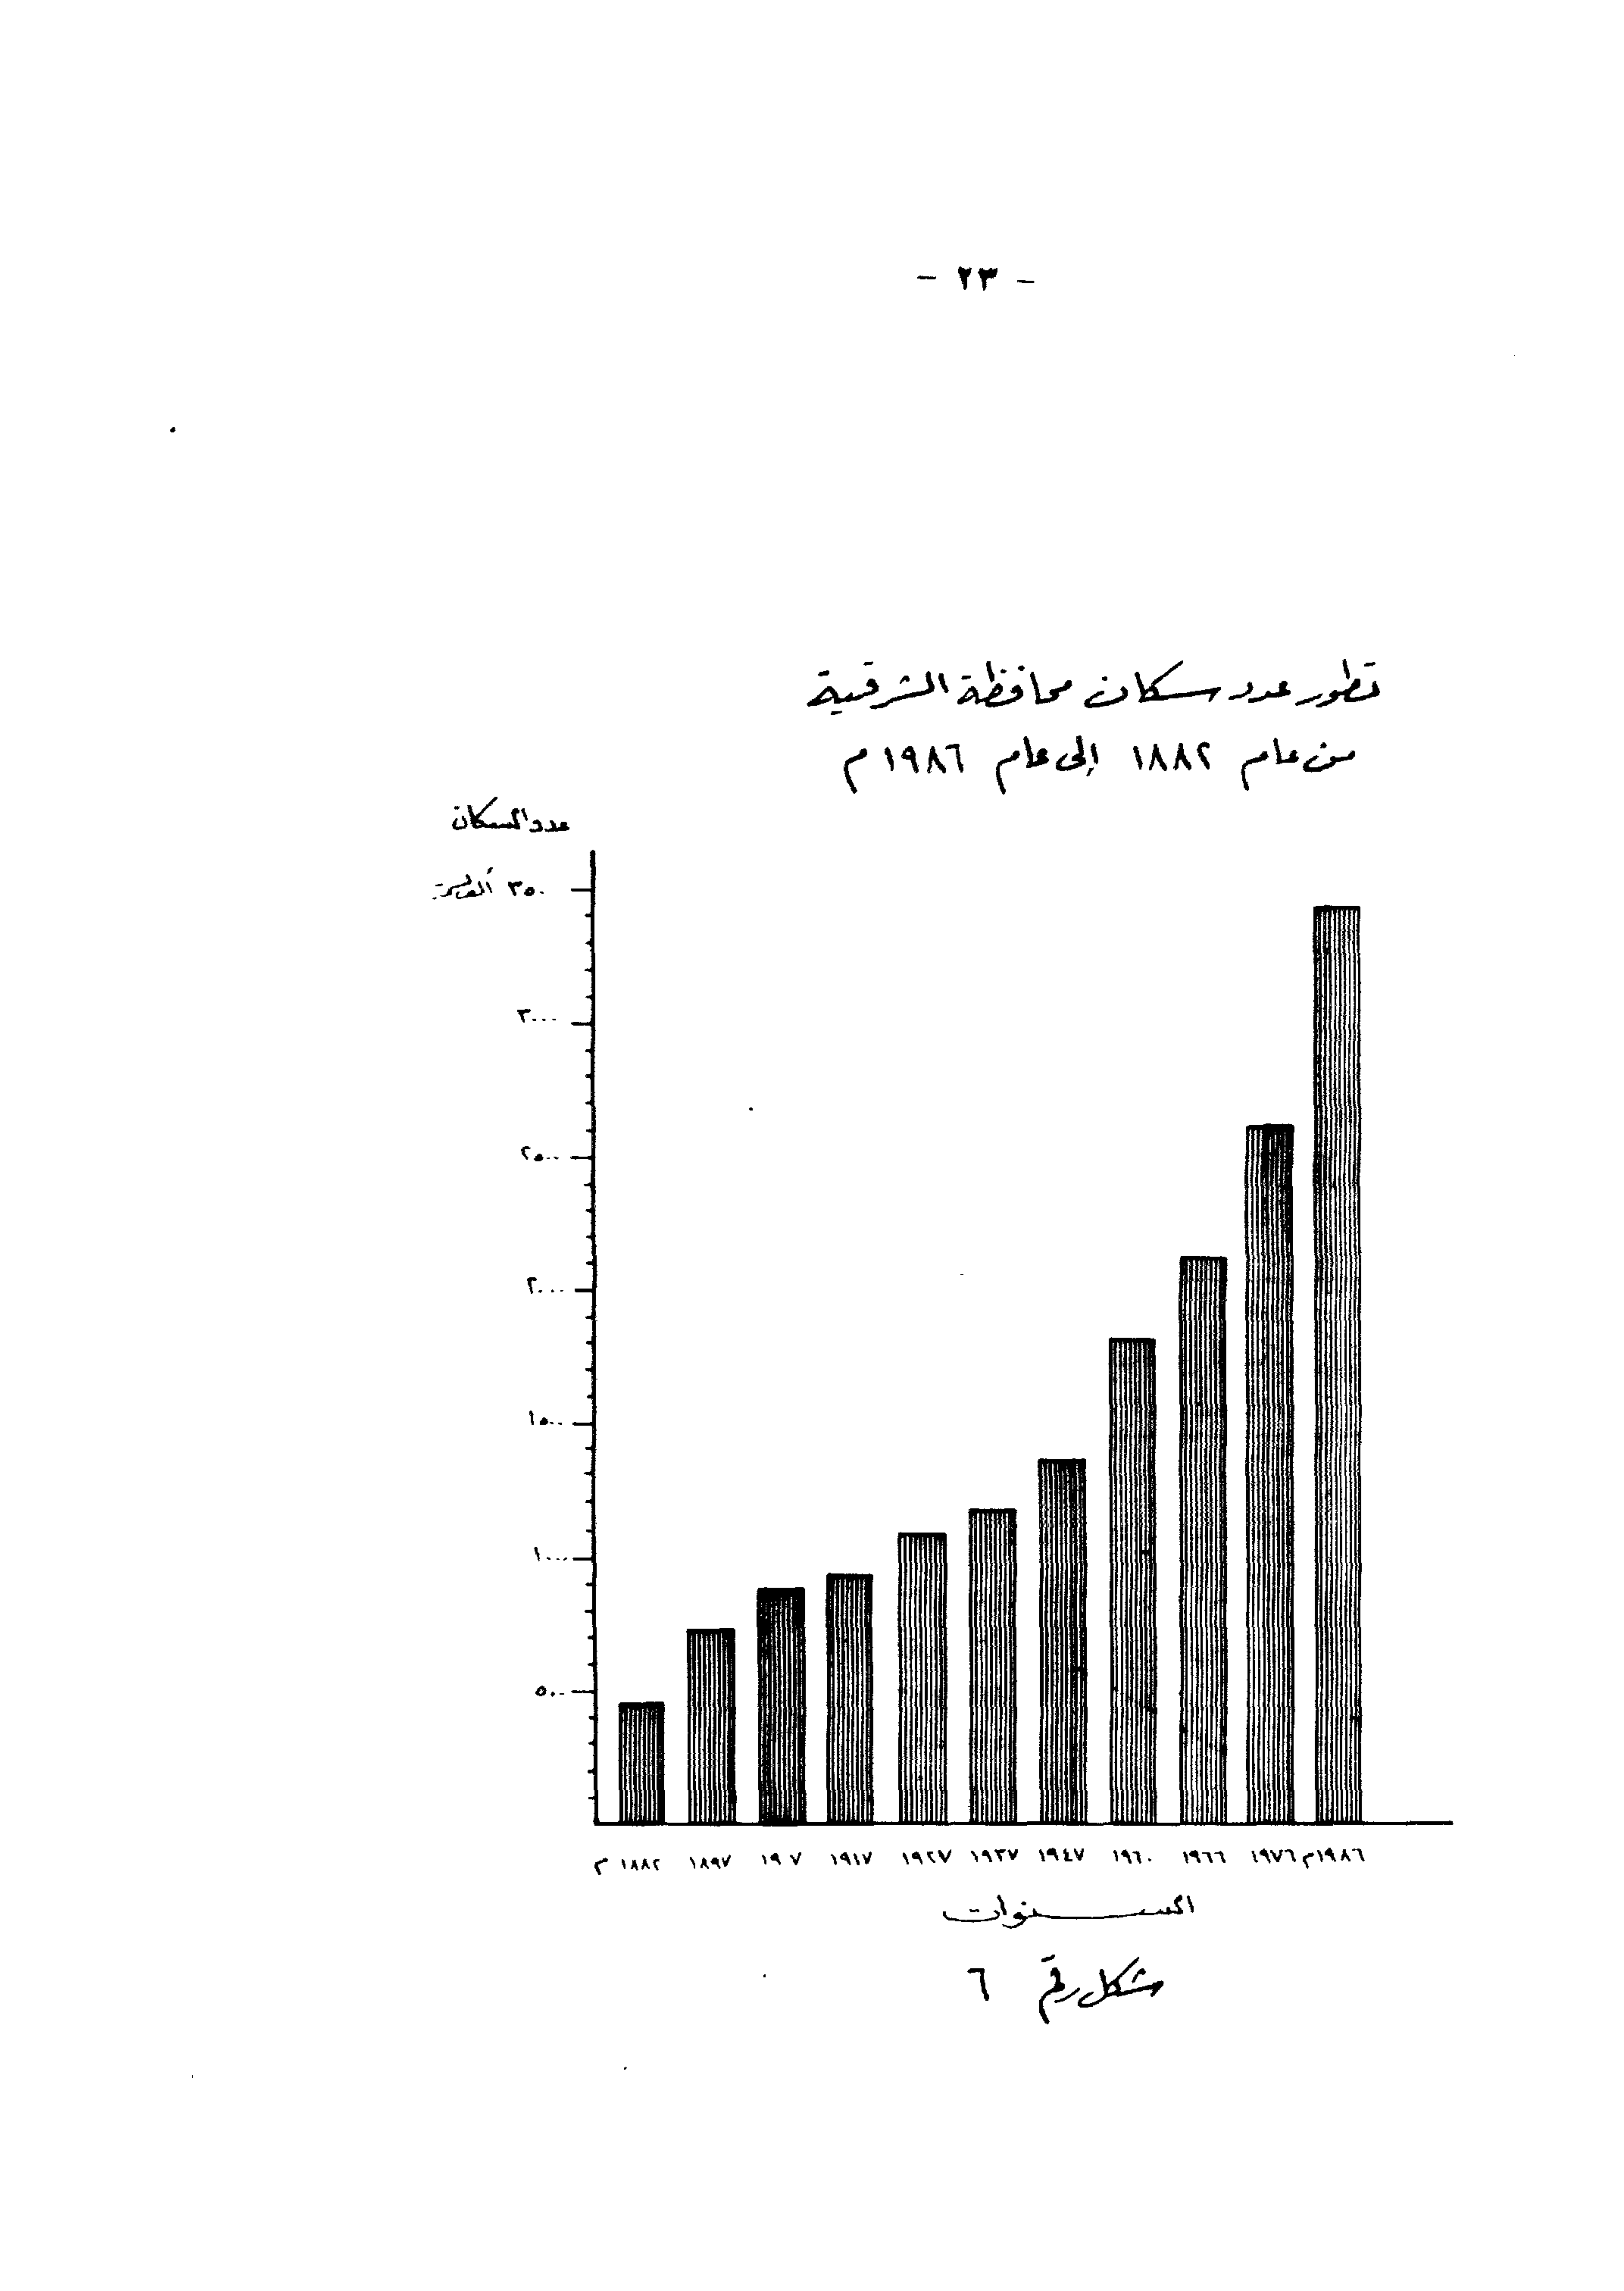 - ٢٣ -
تطور عدد سكان محافظة الشرقية
من عام ١٨٨٢ إلى عام ١٩٨٦ م
عدد السكان
٣٥٠٠ ألف نسمة
٣٠٠٠
٢٥٠٠
٢٠٠٠
١٥٠٠
١٠٠٠
٥٠٠
١٨٨٢ م ١٨٩٧ ١٩٠٧ ١٩١٧ ١٩٢٧ ١٩٣٧ ١٩٤٧ ١٩٦٠ ١٩٦٦ ١٩٧٦ ١٩٨٦م
السنوات
شكل رقم ٦